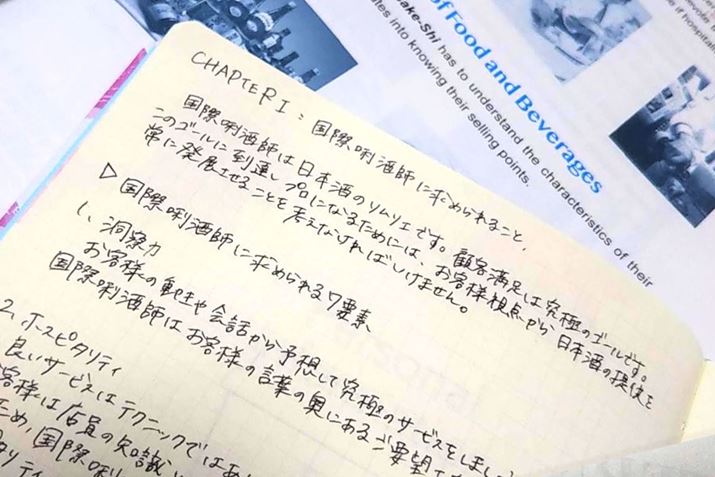 of Food and Beverages
ake-Shi has to understand the characteristics of their
ates into knowing their selling points.
evote
e if hospital
CHAPTER I : 国際唎酒師に求められること,
国際唎酒師は日本酒のソムリエです。顧客満足は究極のゴールです。
このゴールに到達しプロになるためには、お客様視点から、日本酒の提供を
常に発展させることを考えなければいけません。
▷ 国際唎酒師に求められる7要素
1. 洞察力
お客様の動きや会話から予想して究極のサービスをしましょ
国際唎酒師はお客様の言葉の奥にあるご要望
2. ホスピタリティ
良いサービスはテクニックではあ
客様は店員の知識
ため,国際唎
タリティ